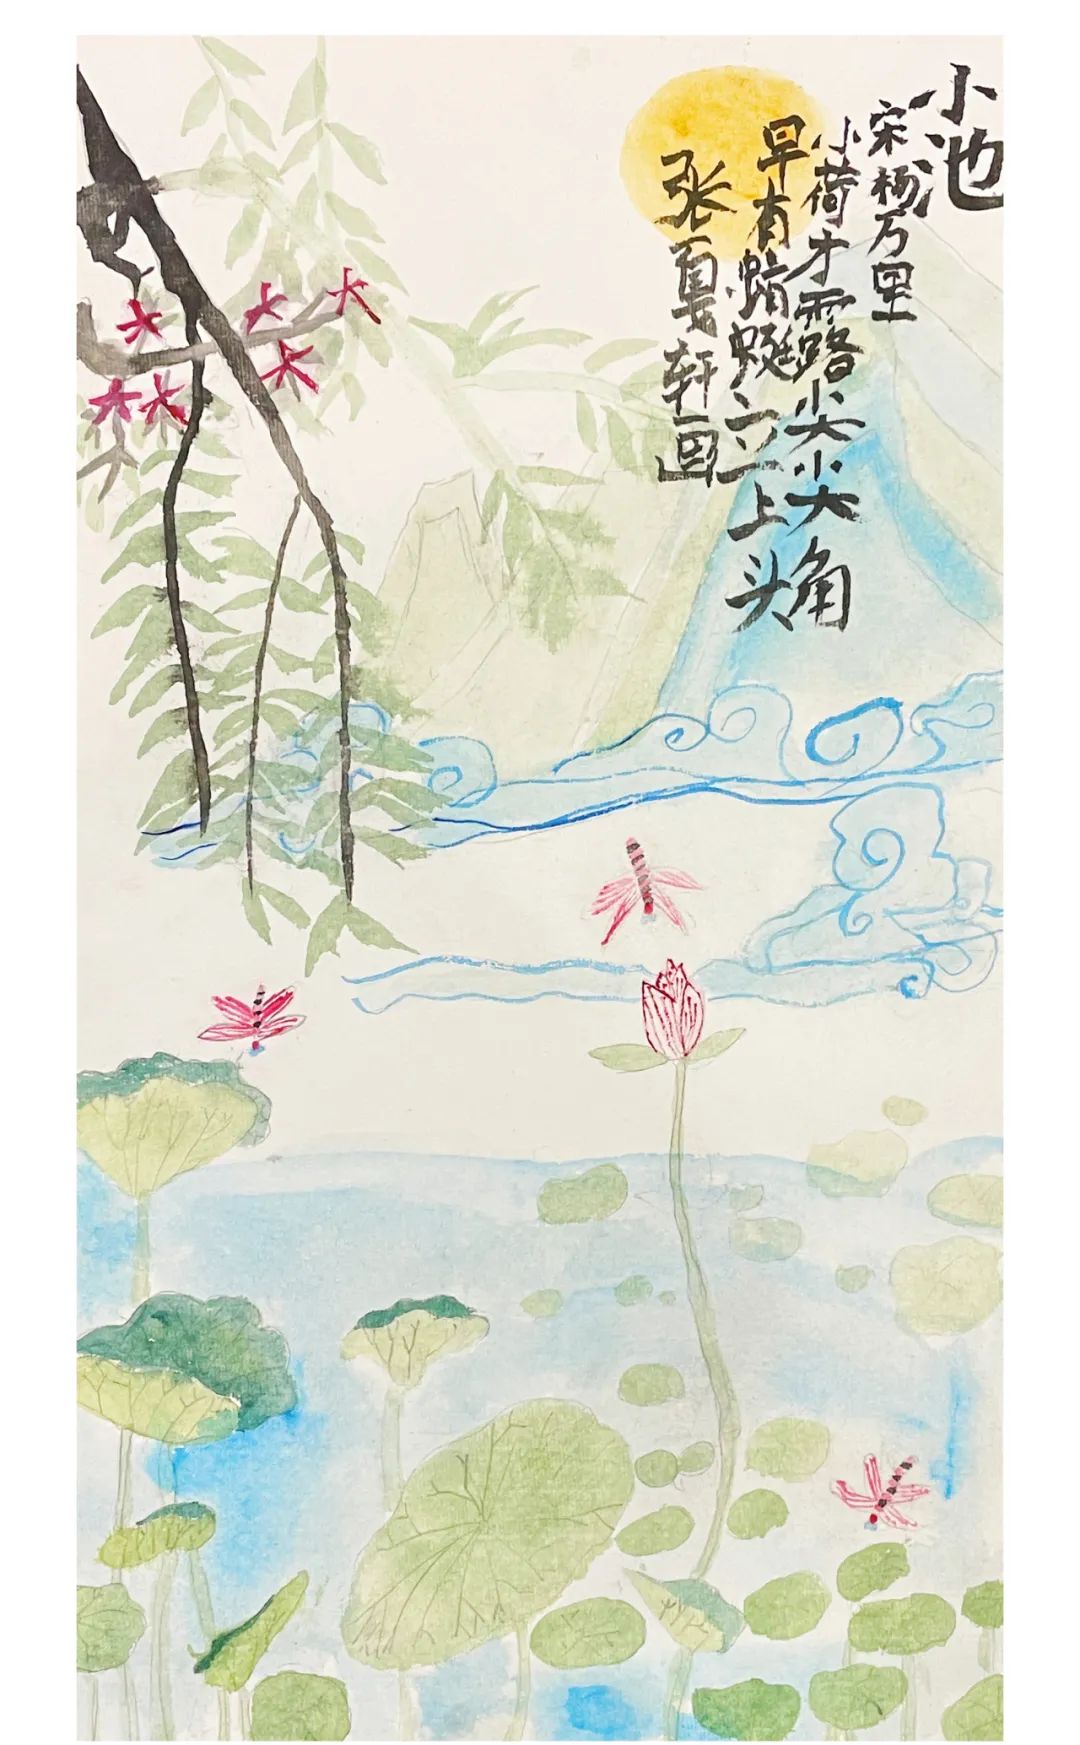 小池
宋杨万里
小荷才露尖尖角
早有蜻蜓立上头
张夏轩画